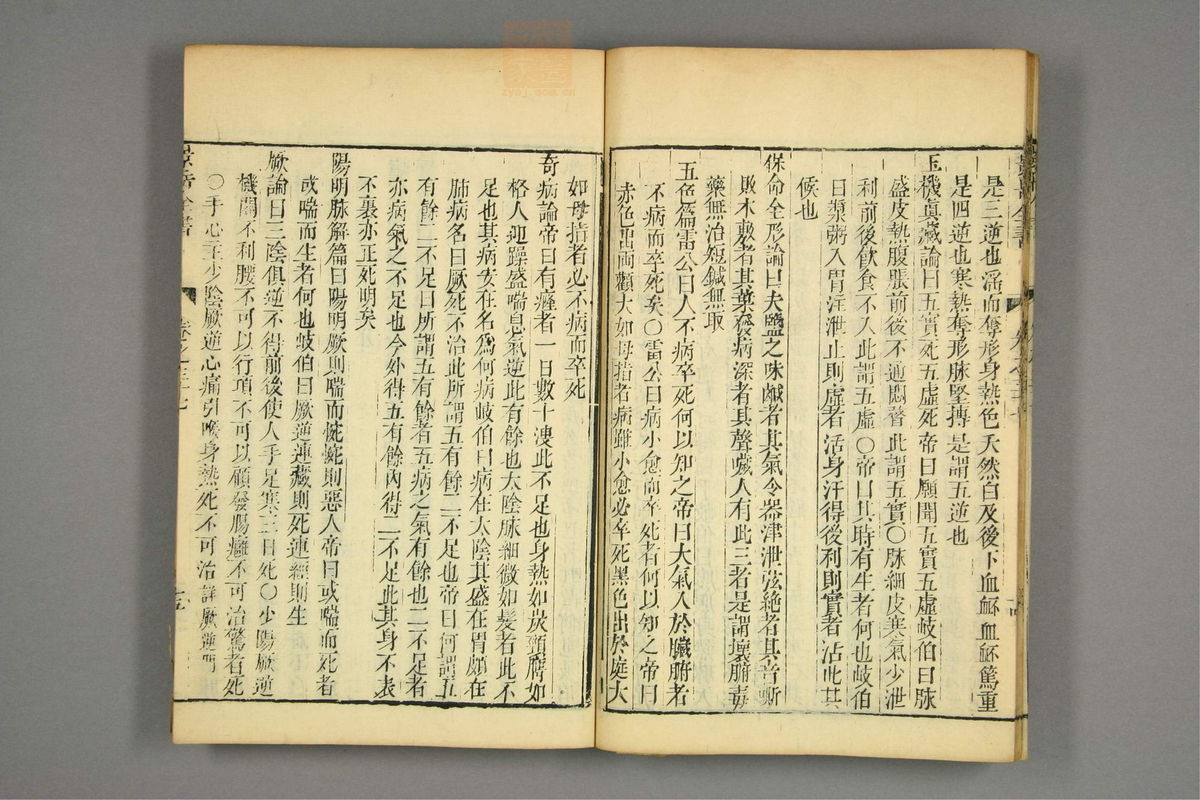 是三逆也淫而奪形身熱色夭然白及後下血衃血衃篤重
是四逆也寒熱奪形脉堅搏是謂五逆也
玉機眞藏論曰五實死五虛死帝曰願聞五實五虛岐伯曰脉
盛皮熱腹脹前後不通悶瞀此謂五實〇脉細皮寒氣少泄
利前後飲食不入此謂五虛〇帝曰其時有生者何也岐伯
曰漿粥入胃泄注止則虛者活身汗得後利則實者活此其
候也
保命全形論曰夫鹽之味鹹者其氣令器津泄弦絕者其音嘶
敗木敷者其葉發病深者其聲噦人有此三者是謂壞腑毒
藥無治短鍼無取
五色篇雷公曰人不病卒死何以知之帝曰大氣入於臟腑者
不病而卒死矣〇雷公曰病小愈而卒死者何以知之帝曰
赤色出兩顴大如母指者病雖小愈必卒死黑色出於庭大
如母指者必不病而卒死
奇病論帝曰有癃者一日數十溲此不足也身熱如炭頸膺如
格人迎躁盛喘息氣逆此有餘也太陰脉細微如髮者此不
足也其病安在名爲何病岐伯曰病在太陰其盛在胃頗在
肺病名曰厥死不治此所謂五有餘二不足也帝曰何謂五
有餘二不足曰所謂五有餘者五病之氣有餘也二不足者
亦病氣之不足也今外得五有餘內得二不足此其身不表
不裏亦正死明矣
陽明脉解篇曰陽明厥則喘而惋惋則惡人帝曰或喘而死者
或喘而生者何也岐伯曰厥逆連藏則死連經則生
厥論曰三陰俱逆不得前後使人手足寒三日死〇少陽厥逆
機關不利腰不可以行項不可以顧發腸癰不可治驚者死
〇手心主少陰厥逆心痛引喉身熱死不可治詳厥逆門
景岳全書
卷之三